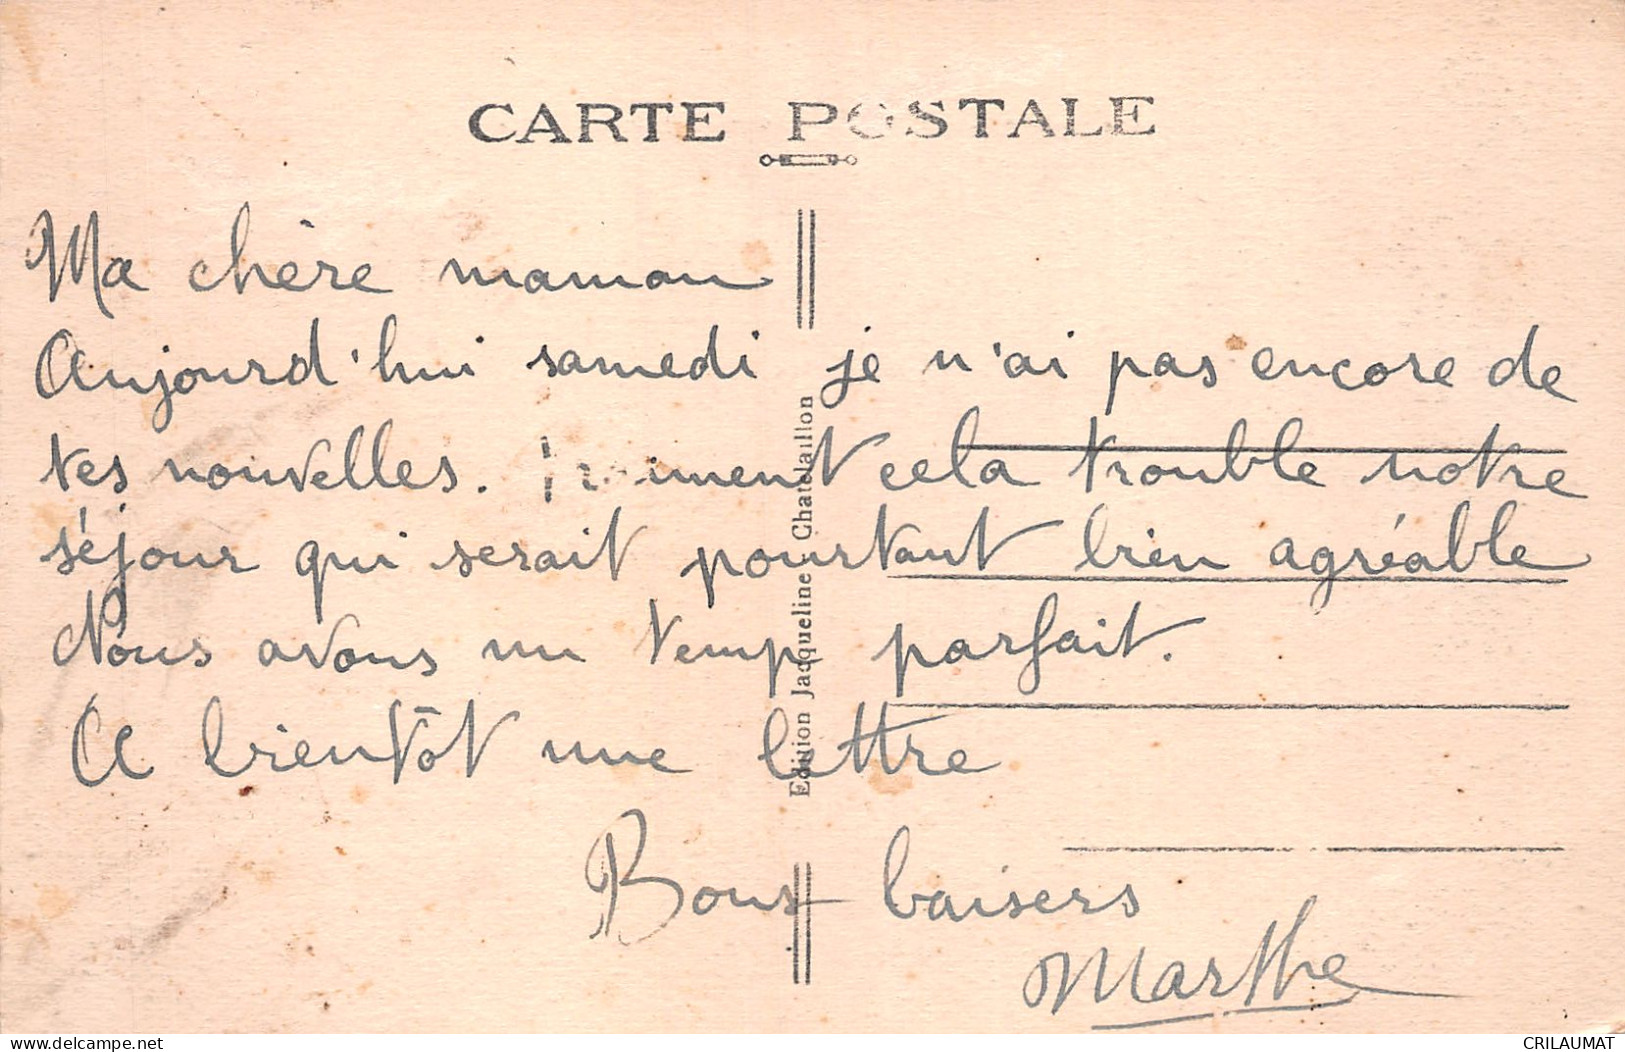 CARTE POSTALE
Ma chère maman
Aujourd'hui samedi je n'ai pas encore de
tes nouvelles. cela trouble notre
séjour qui serait pourtant bien agréable
Nous avons un temps parfait.
A bientôt une lettre
Bons baisers
Marthe
Edition Jacqueline - Chatelaillon
www.delcampe.net
CRILAUMAT